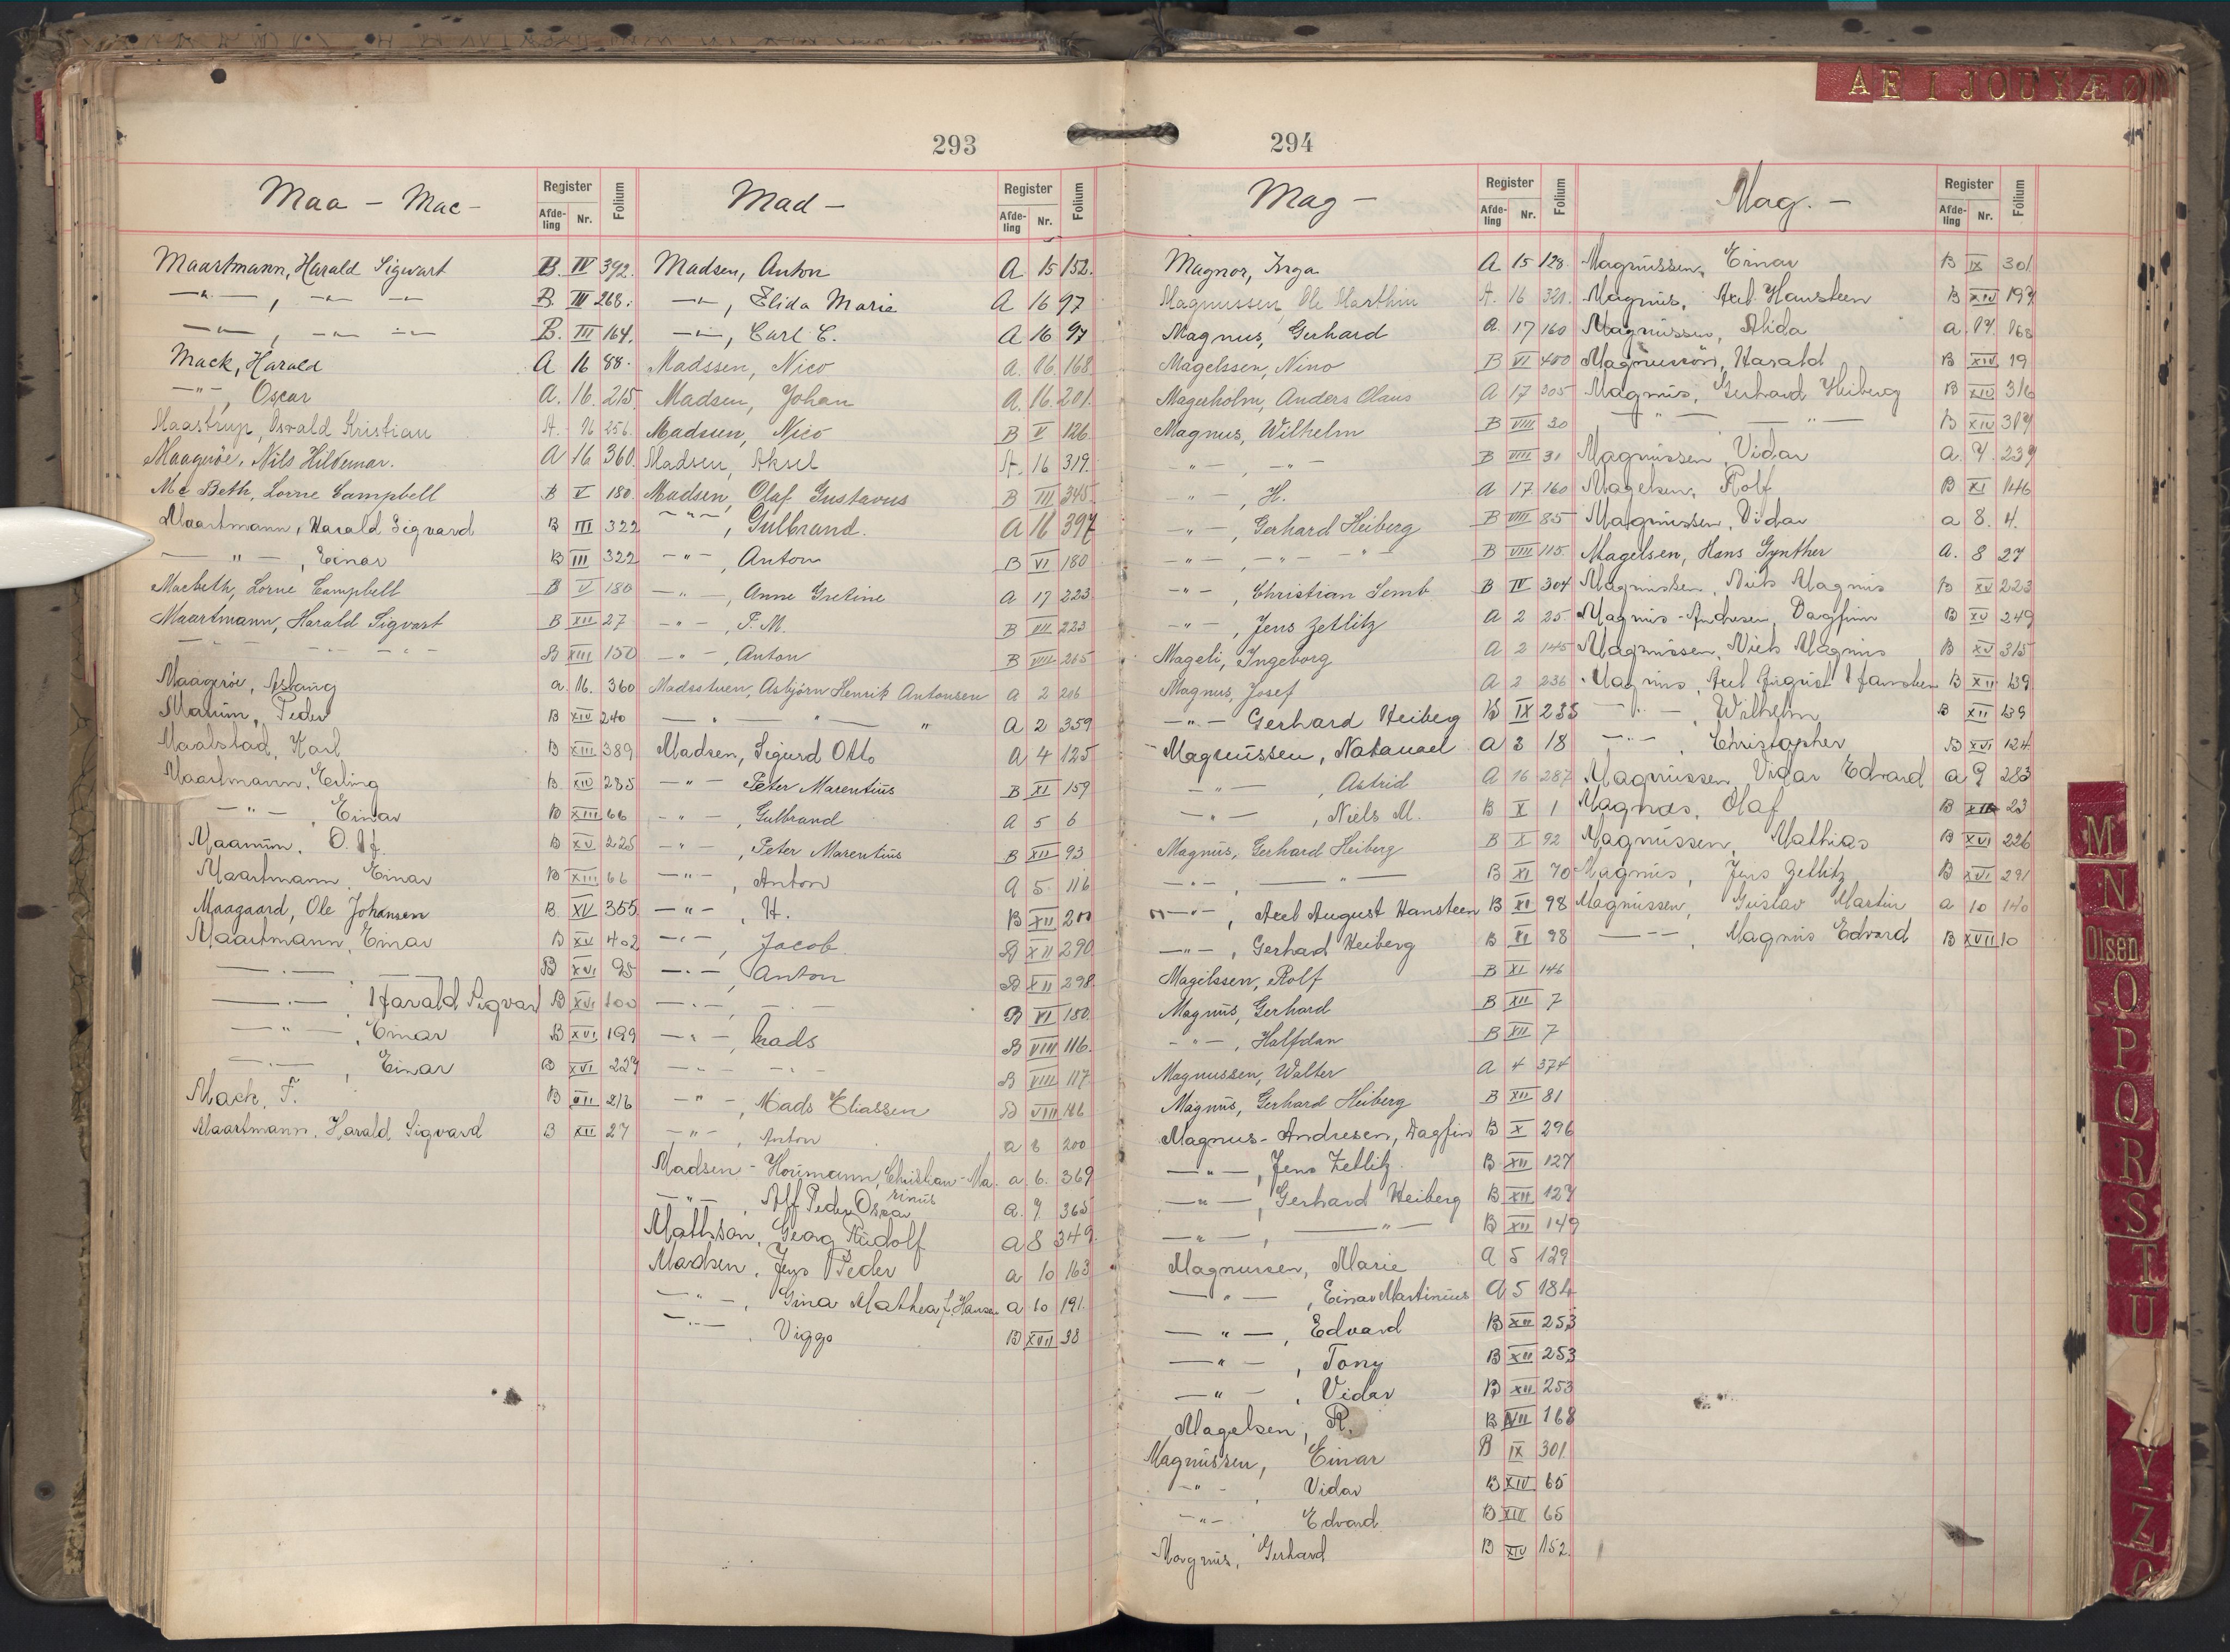 A E I J O U Y Æ Ø
293
Maa - Mac -
Register
Afde-ling Nr. Folium
Maartmann, Harald Sigwart B. IV 392.
—"—, —"— — B. III 268.
—"—, —"— — B. III 164.
Mack, Harald A 16 88.
—"—, Oscar A. 16. 215.
Maastrup, Osvald Kristian A. 16 256.
Maagerøe, Nils Hildemar. A 16 360.
Mc Beth, Lorne Campbell B V 180.
Maartmann, Harald Sigvard B III 322
— " —, Einar B III 322
Macbeth, Lorne Campbell B V 180
Maartmann, Harald Sigvart B XII 27
— " — — " — B XIII 150
Maagerøe, Aslaug a. 16. 360
Maum, Peder B XIV 240
Maalstad, Karl B XIII 389
Maartmann, Erling B. XIV 235
— " —, Einar B XIII 66
Maamum, O. Alf. B XV 225
Maartmann, Einar B XIII 66
Maagaard, Ole Johansen B XV 355
Maartmann, Einar B XV 402
— " —, — B XVI 95
— " —, Harald Sigvard B XVI 100
— " —, Einar B XVI 199
— " —, Einar B XVI 227
Mack, F. B VII 216
Maartmann, Harald Sigvard B XII 27
Mad -
Register
Afde-ling Nr. Folium
Madsen, Anton A 15 152.
—"—, Elida Marie A 16 97
—"—, Carl C. A 16 97
Madssen, Nico A. 16. 168
Madsen, Johan A. 16. 201.
Madssen, Nico B V 126.
Madsen, Aksel A. 16 319.
Madsen, Olaf Gustavus B III 345
— " —, Gulbrand. A 16 397
— " —, Anton B VI 180
— " —, Anne Gretine A 17 223
— " —, P. M. B VII 223
— " —, Anton B VIII 265
Madsstuen, Asbjørn Henrik Antonsen A 2 216
— " — " — " A 2 359
Madsen, Sigurd Otto A 4 125
— " — Peter Marentius B XI 159
— " —, Gulbrand A 5 6
— " —, Peter Marentius B XII 93
— " —, Anton A 5. 116
— " —, H. B XII 200
— " —, Jacob B XII 290
— " —, Anton B XII 298
— " —, — B VI 180.
— " —, Mads B VIII 116.
— " — — " — B VIII 117
— " —, Mads Eliassen B VIII 116
— " —, Anton a 8 200
Madsen - Houmann, Christian - Ma- a. 6. 369
rinus
— " —, Alf Peder Oskar a. 7. 365
Mathson, Georg Rudolf a 8 349.
Madsen, Jens Peder a 10 163
— " —, Gina Mathea f. Hansen a 10 191.
— " —, Viggo B XVII 38
294
Mag -
Register
Afde-ling Nr. Folium
Magnor, Inga A 15 128.
Magnussen, Ole Marthin A. 16 321.
Magnus, Gerhard A. 17 160
Magelssen, Nino B VI 400
Magerholm, Anders Olaus A 17 305
Magnus, Wilhelm B VIII 30
— " —, — " — B VIII 31
— " —, H. A 17 160
— " —, Gerhard Heiberg B VIII 85
— " —, — " — — " — B VIII 115.
— " —, Christian Semb B IV 304
— " —, Jens Zetlitz A 2 25
Mageli, Ingeborg A 2 145
Magnus, Josef A 2 236
— " — Gerhard Heiberg B IX 235
Magnussen, Natanael A 3 18
— " —, Astrid A 16 287
— " —, Niels M. B X 1
Magnus, Gerhard Heiberg B X 92
— " —, — " — B XI 70
— " —, Axel August Hansteen B XI 98
— " —, Gerhad Heiberg B XI 98
Magelssen, Rolf B XI 146
Magnus, Gerhard B XII 7
— " —, Halfdan B XII 7
Magnussen, Walter A 4 374
Magnus, Gerhard Heiberg B XII 81
Magnus-Andresen, Dagfin B X 296
— " —, Jens Zetlitz. B XII 127
— " —, Gerhard Heiberg B XII 127
— " —, — " — B XII 149
Magnussen, Marie A 5 129
— " —, Einar Martinius A 5 184
— " —, Edvard B XII 253
— " —, Tony B XII 253
— " —, Vidar B XII 253
Magelsen, R. B VII 168
Magnussen, Einar B IX 301
— " — Vidar B XIV 65
— " — Edvard B XIV 65
Magnus, Gerhard B XIV 152.
Mag. -
Register
Afde-ling Nr. Folium
Magnussen, Einar B IX 301.
Magnus, Axel Hansteen B XIV 197
Magnussen, Alida a. 17. 168
Magnusson, Harald B XIV 19
Magnus, Gerhard Heiberg B XIV 316
— " — — " — B XIV 317
Magnussen, Vidar a. 7. 239
Magelsen, Rolf B XI 146
Magnussen, Vidar a 8. 4.
Magelsen, Hans Gynther A. 8 27
Magnussen, Niels Magnus B XV 223
Magnus-Andresen, Dagfinn B XV 249
Magnussen, Niels Magnus B XV 315
Magnus, Axel August Hansteen B XII 139
— " —, Wilhelm B XII 139
— " —, Christopher B XVI 124
Magnussen, Vidar Edvard a 9 283
Magnæs, Olaf B 23
Magnussen, Mathias B XVI 226
Magnus, Jens Zetlitz B XVI 291
Magnussen, Gustav Martin a 10 140
— " —, Magnus Edvard B XVII 10
M
N
Olsen
O
P
Q
R
S
T
U
Y
Z